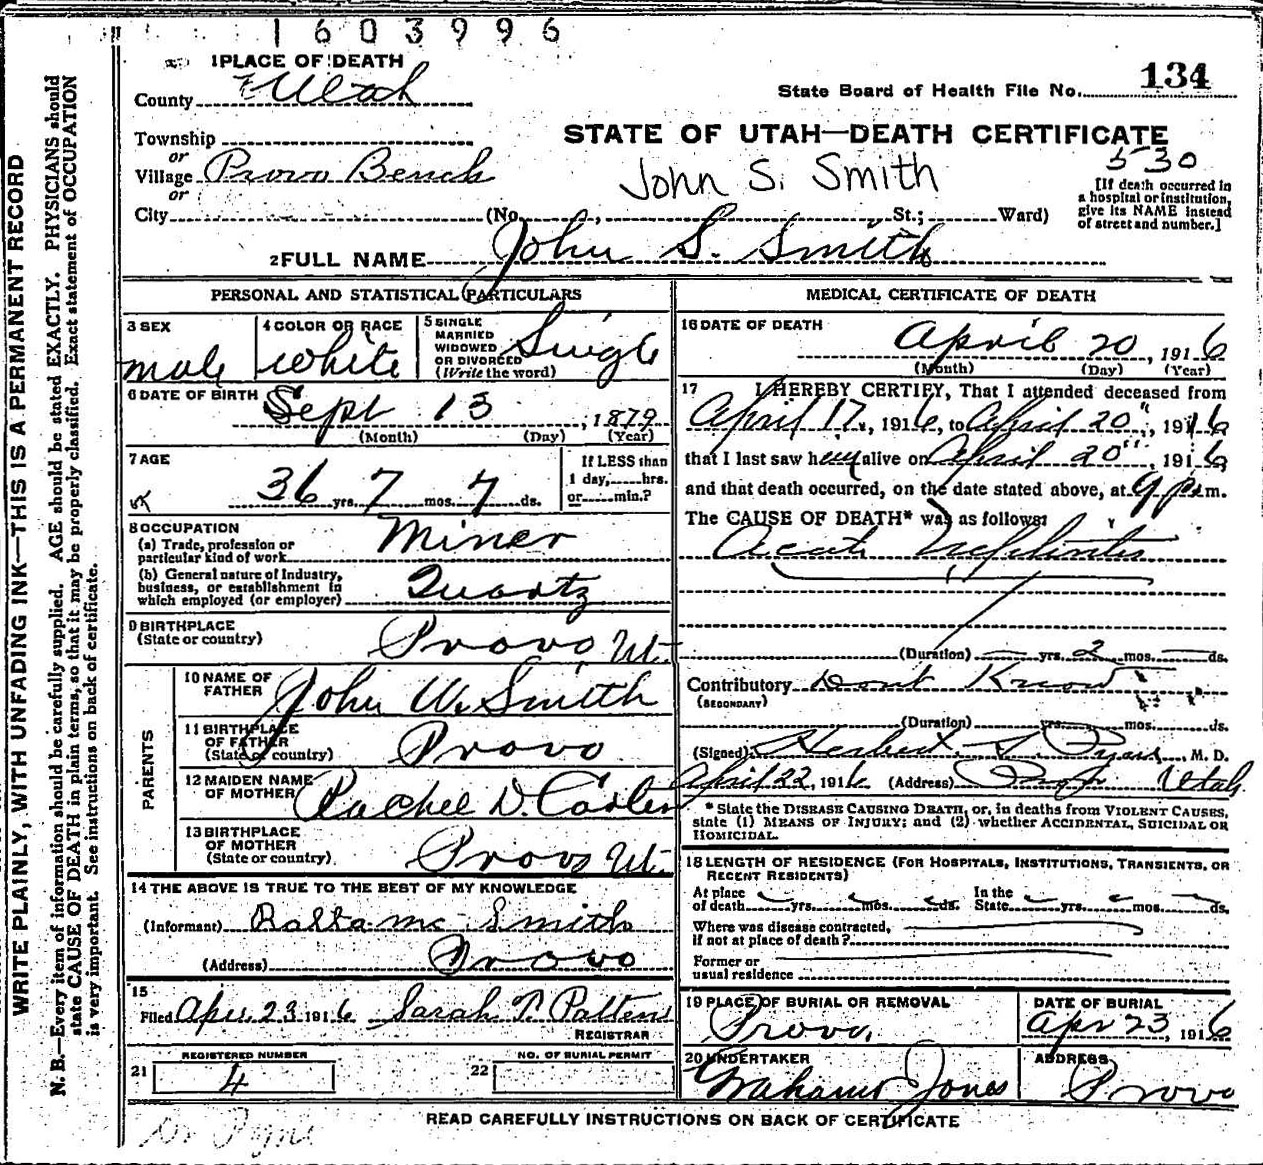 1603996
1 PLACE OF DEATH
County Utah
State Board of Health File No. 134
Township
or
Village Provo Bench
or
City (No. , St.; Ward)
STATE OF UTAH—DEATH CERTIFICATE
530
John S. Smith
[If death occurred in
a hospital or institution,
give its NAME instead
of street and number.]
2 FULL NAME John S. Smith
PERSONAL AND STATISTICAL PARTICULARS
3 SEX
male
4 COLOR OR RACE
White
5 SINGLE
MARRIED
WIDOWED
OR DIVORCED
(Write the word)
Single
6 DATE OF BIRTH
Sept 13, 1879
(Month) (Day) (Year)
7 AGE
36 yrs. 7 mos. 7 ds.
If LESS than
1 day, hrs.
or min.?
8 OCCUPATION
(a) Trade, profession or
particular kind of work Miner
(b) General nature of Industry,
business, or establishment in
which employed (or employer) Quartz
9 BIRTHPLACE
(State or country) Provo Ut.
PARENTS
10 NAME OF
FATHER John W. Smith
11 BIRTHPLACE
OF FATHER
(State or country) Provo
12 MAIDEN NAME
OF MOTHER Rachel D.
13 BIRTHPLACE
OF MOTHER
(State or country) Provo Ut.
14 THE ABOVE IS TRUE TO THE BEST OF MY KNOWLEDGE
(Informant) Smith
(Address) Provo
15
Filed Apr 23 1916 Sarah Patten
REGISTRAR
21 REGISTERED NUMBER
4
22 NO. OF BURIAL PERMIT
MEDICAL CERTIFICATE OF DEATH
16 DATE OF DEATH
April 20, 1916
(Month) (Day) (Year)
17 I HEREBY CERTIFY, That I attended deceased from
April 17, 1916, to April 20", 1916
that I last saw him alive on April 20", 1916
and that death occurred, on the date stated above, at 9 p.m.
The CAUSE OF DEATH* was as follows:
Acute Nephritis
(Duration) yrs. 2 mos. ds.
Contributory Dont Know
(SECONDARY)
(Duration) yrs. mos. ds.
(Signed) Herbert, M. D.
April 22, 1916 (Address) Utah
* State the DISEASE CAUSING DEATH, or, in deaths from VIOLENT CAUSES,
state (1) MEANS OF INJURY; and (2) whether ACCIDENTAL, SUICIDAL OR
HOMICIDAL.
18 LENGTH OF RESIDENCE (FOR HOSPITALS, INSTITUTIONS, TRANSIENTS, OR
RECENT RESIDENTS)
At place
of death yrs. mos. ds.
In the
State yrs. mos. ds.
Where was disease contracted,
if not at place of death?
Former or
usual residence
19 PLACE OF BURIAL OR REMOVAL
Provo,
DATE OF BURIAL
Apr 23, 1916
20 UNDERTAKER
Jones
ADDRESS
Provo
READ CAREFULLY INSTRUCTIONS ON BACK OF CERTIFICATE
WRITE PLAINLY, WITH UNFADING INK—THIS IS A PERMANENT RECORD
N. B.—Every item of information should be carefully supplied. AGE should be stated EXACTLY. PHYSICIANS should
state CAUSE OF DEATH in plain terms, so that it may be properly classified. Exact statement of OCCUPATION
is very important. See instructions on back of certificate.